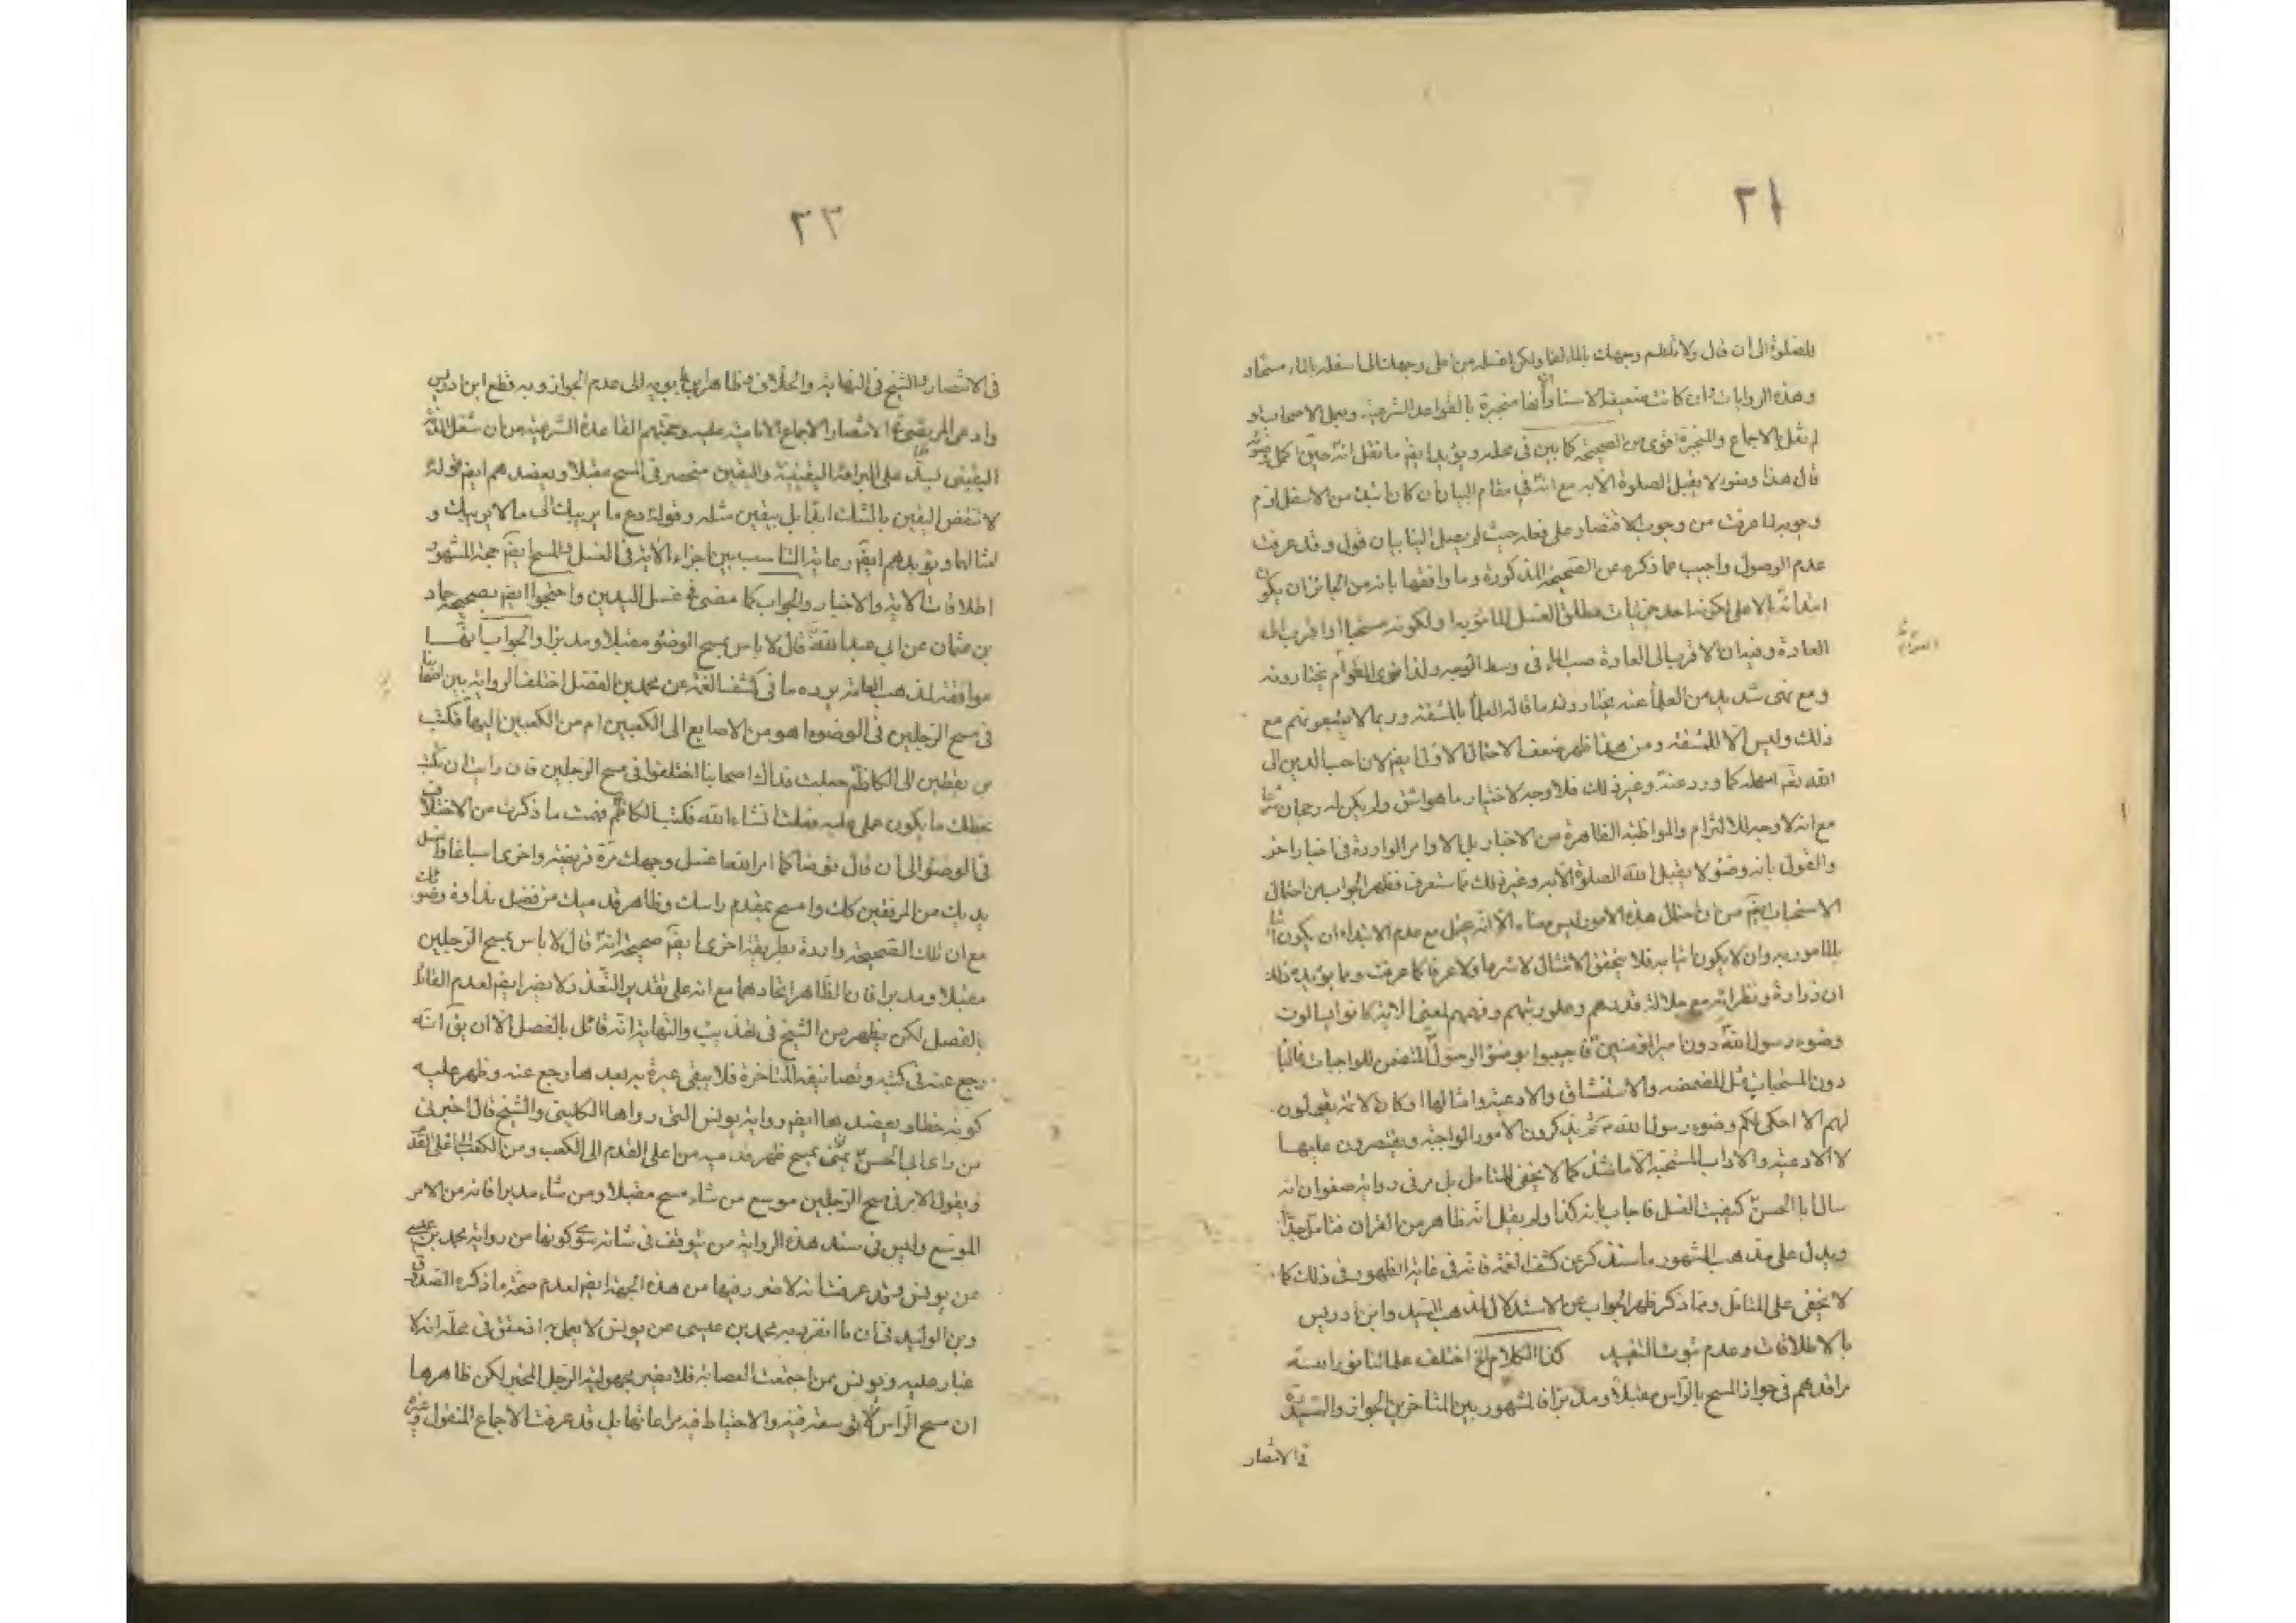 ٢١
للصلوة الى ان قال ولا تلطم وجهك بالماء لطما ولكن اغسله من اعلى وجهك الى اسفله بالماء مسحا و
وهذه الروايات وان كانت ضعيفة الاسناد الا انها منجبرة بالقواعد الشرعية وبعمل الاصحاب و
لم نقل الاجماع والمنجبرة اقوى من الصحيحة كما بين في محله ويؤيد ايضم ما نقل انه حين اكمل وضوئه
قال هذا وضوء لا يقبل الصلوة الا به مع انه في مقام البيان ان كان ابتدء من الاسفل لزم
وجوبه لما عرفت من وجوب الاقتصار على فعله حيث لم يصل الينا بيان قولى وقد عرفت
عدم الوصول واجيب عما ذكره عن الصحيحة المذكورة وما وافقها بانه من الجائز ان يكون
ابتدائه بالاعلى لكونه احد جزئيات مطلق الغسل المامور به او لكونه مستحبا او اقرب الى
العادة وفيه ان الاقرب الى العادة صب الماء في وسط الوجه ولذا ترى العوام يختارونه
ومع نهى شديد من العلماء عنه يختارونه ما قاله العلماء بالمشقة وربما لا يتبعونهم مع
ذلك وليس الا للمشقة ومن هذا ظهر ضعف الاحتمال الاول ايضم لان احب الدين الى
الله تعم اسهله كما ورد عنه وغير ذلك فلا وجه لاختيار ما هو اشق ولم يكن له رجحان شرعا
مع انه لا وجه للالتزام والمواظبة الظاهرة من الاخبار بل الاوامر الواردة في اخبار اخر
والقول بانه وضوء لا يقبل الله الصلوة الا به وغير ذلك مما ستعرف فظهر الجواب عن احتمال
الاستحباب ايضم من ان احتمال هذه الامور ليس معناه الا انه يحتمل مع عدم الابتداء ان يكون اتيا
بالمامور به وان لا يكون اتيا به فلا يتحقق الامتثال لا شرعا ولا عرفا كما عرفت ومما يؤيد ذلك
ان زرارة ونظرائه مع جلالة قدرهم وعلو رتبتهم وفهمهم لمعنى الاية كانوا يسالون
وضوء رسول الله دون امير المؤمنين فاجيبوا بوضوء الرسول المتضمن للواجبات غالبا
دون المستحبات مثل المضمضه والاستنشاق والادعية وامثالها وكان الائمة يقولون
لهم الا احكى لكم وضوء رسول الله ثم يذكرون الامور الواجبة ويقتصرون عليها
لا الادعية والاداب المستحبة الا ما شذ كما لا يخفى للمتامل بل مر في رواية صفوان انه
سال ابا الحسن كيفية الغسل فاجاب بانه كذا ولم يقل انه ظاهر من القران فتامل جدا
ويدل على مذهب المشهور ما سنذكر عن كشف الغمة فانه في غاية الظهور في ذلك كما
لا يخفى على المتامل ومما ذكر ظهر الجواب عن الاستدلال لمذهب السيد وابن ادريس
بالاطلاقات وعدم ثبوت التقييد كذا الكلام الخ اختلف علمائنا نور الله
مراقدهم في جواز المسح بالراس مقبلا ومدبرا فالمشهور بين المتاخرين الجواز والسيد
في الانتصار
٢٢
في الانتصار والشيخ في النهاية والخلاف وظاهر ابن بابويه الى عدم الجواز وبه قطع ابن ادريس
وادعى المرتضى في الانتصار الاجماع الامامية عليه وحجتهم القاعدة الشرعية من ان شغل الذمة
اليقينى يستدعى البرائة اليقينية واليقين منحصر في المسح مقبلا ويعضدهم ايضم قوله
لا تنقض اليقين بالشك ابدا بل بيقين مثله وقوله دع ما يريبك الى ما لا يريبك و
امثالهما ويؤيدهم ايضم رعاية التناسب بين اجزاء الاية في الغسل والمسح ايضم حجة المشهور
اطلاقات الاية والاخبار والجواب كما مضى في غسل اليدين واحتجوا ايضم بصحيحة حماد
بن عثمان عن ابي عبد الله قال لا باس بمسح الوضوء مقبلا ومدبرا والجواب انها
موافقة لمذهب العامة يرده ما في كشف الغمة عن محمد بن الفضل اختلف الرواية بين اصحابنا
في مسح الرجلين في الوضوء اهو من الاصابع الى الكعبين ام من الكعبين اليها فكتب
بن يقطين الى الكاظم جعلت فداك اصحابنا اختلفوا في مسح الرجلين فان رايت ان تكتب
بخطك ما يكون عملى عليه فعلت انشاء الله فكتب الكاظم فهمت ما ذكرت من الاختلاف
في الوضوء الى ان قال توضا كما امر الله اغسل وجهك مرة فريضة واخرى اسباغا واغسل
يديك من المرفقين كك وامسح بمقدم راسك وظاهر قدميك من فضل نداوة وضوئك
مع ان تلك الصحيحة واردة بطريقة اخرى ايضم صحيحة انه قال لا باس بمسح الرجلين
مقبلا ومدبرا فان الظاهر اتحادهما مع انه على تقدير التعدد لا يضر ايضم لعدم القائل
بالفصل لكن يظهر من الشيخ في التهذيب والنهاية انه قائل بالفصل الا ان يق انه
رجع عنه في كتبه وتصانيفه المتاخرة فلا يبقى عبرة به بعد ما رجع عنه وظهر عليه
كونه خطا ويعضدها ايضم رواية يونس التى رواها الكلينى والشيخ قال اخبرنى
من راى ابي الحسن بمنى يمسح ظهر قدميه من اعلى القدم الى الكعب ومن الكعب الى اعلى القدم
ويقول الامر في مسح الرجلين موسع من شاء مسح مقبلا ومن شاء مدبرا فانه من الامر
الموسع وليس في سند هذه الرواية من يتوقف في شانه سوى كونها من رواية محمد بن عيسى
عن يونس وقد عرفت انه لا ضرر فيها من هذه الجهة ايضم لعدم صحة ما ذكره الصدوق
وبن الوليد في ان ما انفرد به محمد بن عيسى عن يونس لا يعمل به اذ حقق في محله انه لا
غبار عليه ويونس ممن اجتمعت العصابة فلا يضر مجهولية الرجل المخبر لكن ظاهرها
ان مسح الراس لا توسعة فيه والاحتياط فيه مراعاتها بل قد عرفت الاجماع المنقول وغيره